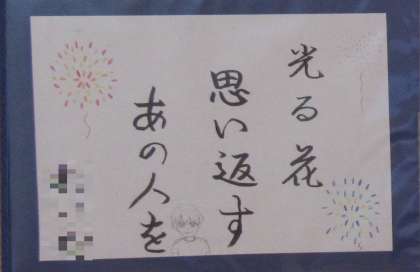 光る花
思い返す
あの人を